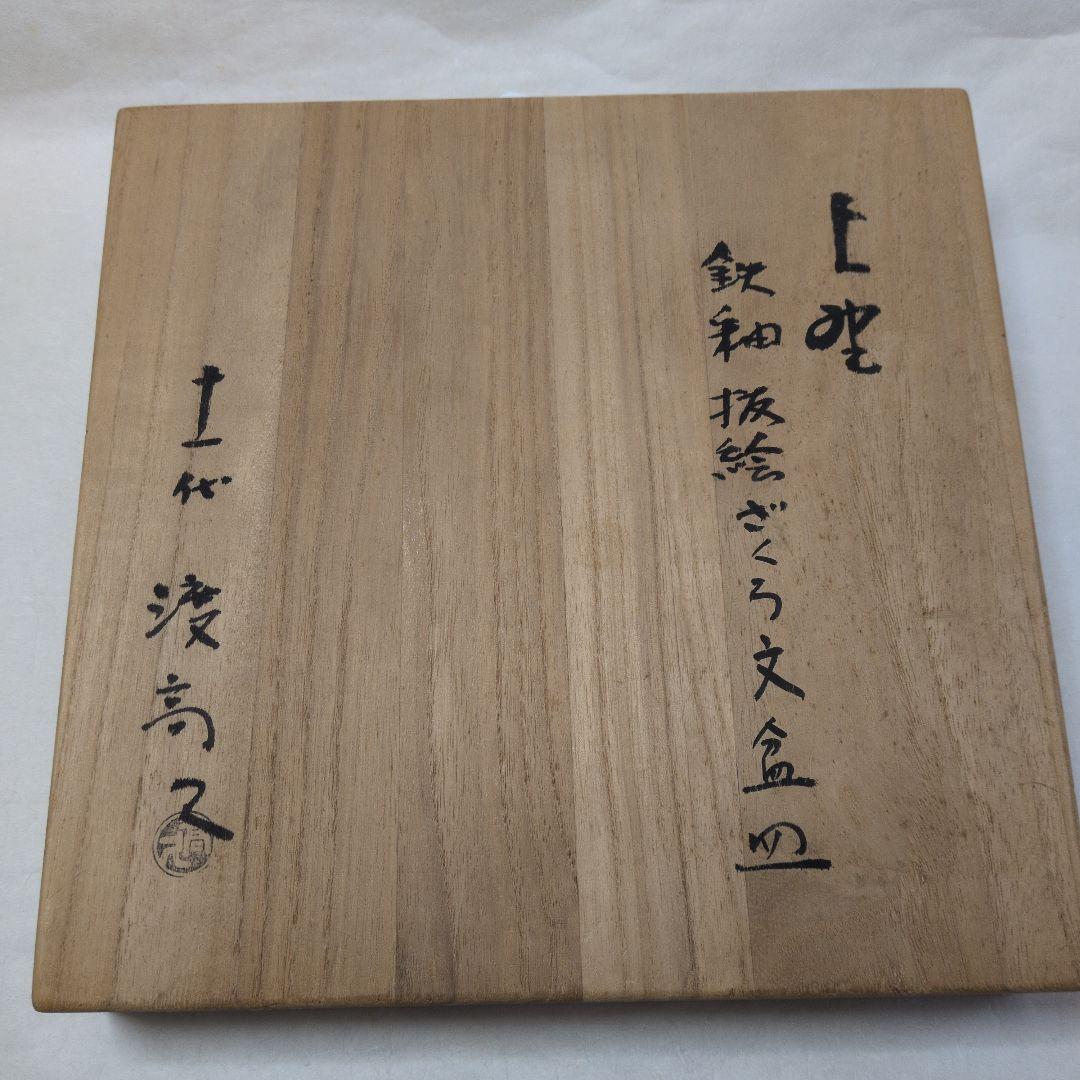 上野
鉄釉抜絵ざくろ文皿
十一代 渡高久